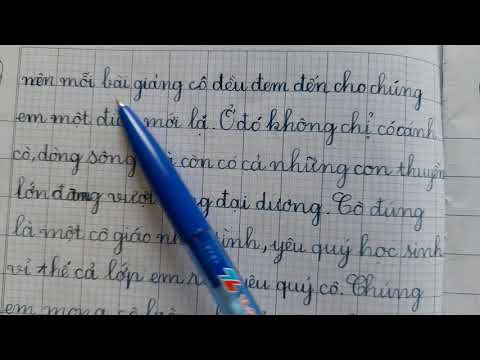 nên mỗi bài giảng cô đều đem đến cho chúng
em một mới lạ. Ở đó không chỉ có cánh
cò, dòng sông còn có cả những con thuyền
lớn đang vượt đại dương. Cô đúng
là một cô giáo tình, yêu quý học sinh
vì thế cả lớp em yêu quý cô. Chúng
em mong cô